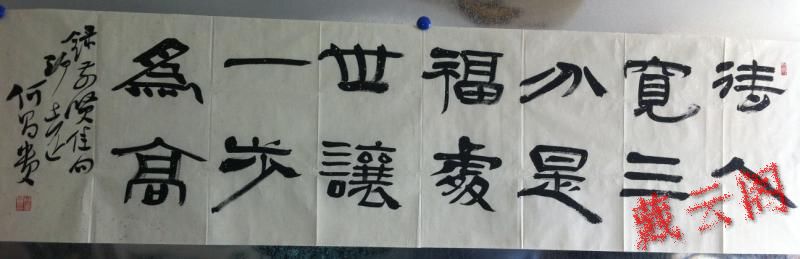 待人
寬三
分是
福處
世讓
一步
為高
錄前贤佳句
何昌贵
戴云网